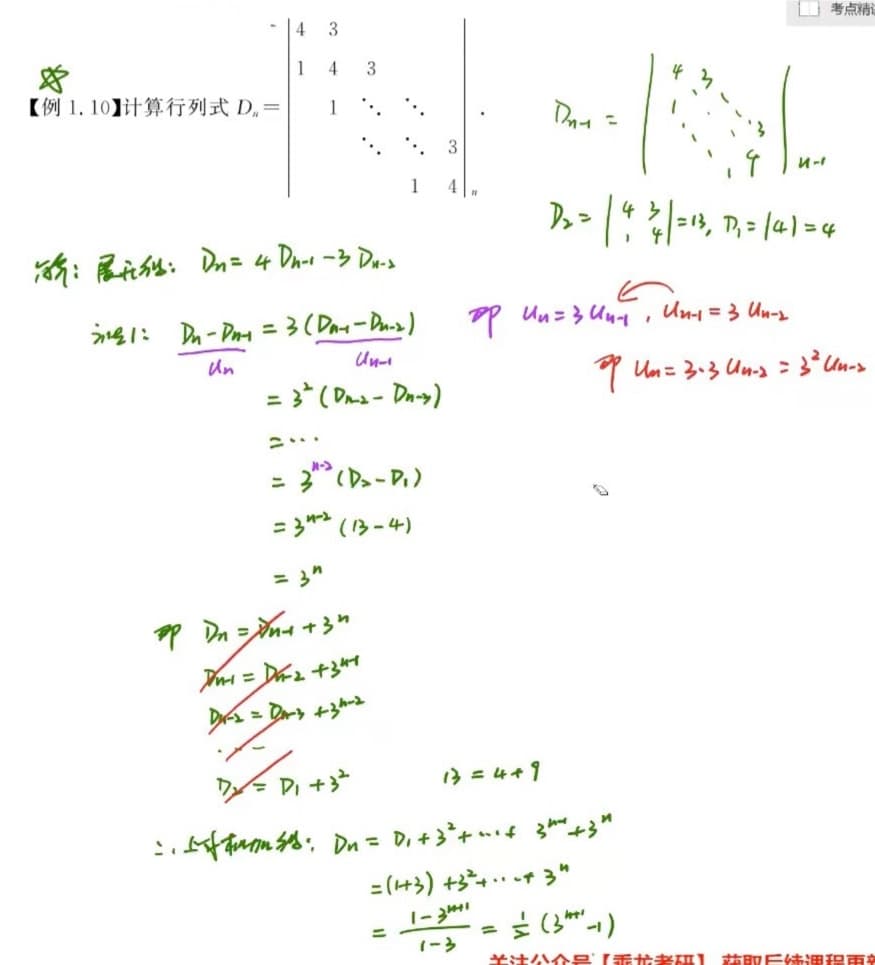 考点精
4 3
1 4 3
【例 1.10】计算行列式 Dₙ = 1 ⋱ ⋱ .
⋱ ⋱ 3
1 4 n
Dn-1 = | 4 3 1 3 1 4 | n-1
D₂ = | 4 3 1 4 | = 13, D₁ = |4| = 4
: 展开得: Dn = 4Dn-1 - 3Dn-2
法1: Dn - Dn-1 = 3(Dn-1 - Dn-2)
Un Un-1
即 Un = 3Un-1, Un-1 = 3Un-2
即 Un = 3·3Un-2 = 3²Un-2
= 3²(Dn-2 - Dn-3)
= ···
= 3ⁿ⁻²(D₂ - D₁)
= 3ⁿ⁻²(13 - 4)
= 3ⁿ
即 Dn = Dn-1 + 3ⁿ
Dn-1 = Dn-2 + 3ⁿ⁻¹
Dn-2 = Dn-3 + 3ⁿ⁻²
···
D₂ = D₁ + 3² 13 = 4 + 9
∴ 上式相加得: Dn = D₁ + 3² + ··· + 3ⁿ⁻¹ + 3ⁿ
= (1+3) + 3² + ··· + 3ⁿ
= (1 - 3ⁿ⁺¹)/(1 - 3) = 1/2 (3ⁿ⁺¹ - 1)
关注公众号【乘龙考研】 获取后续课程更新